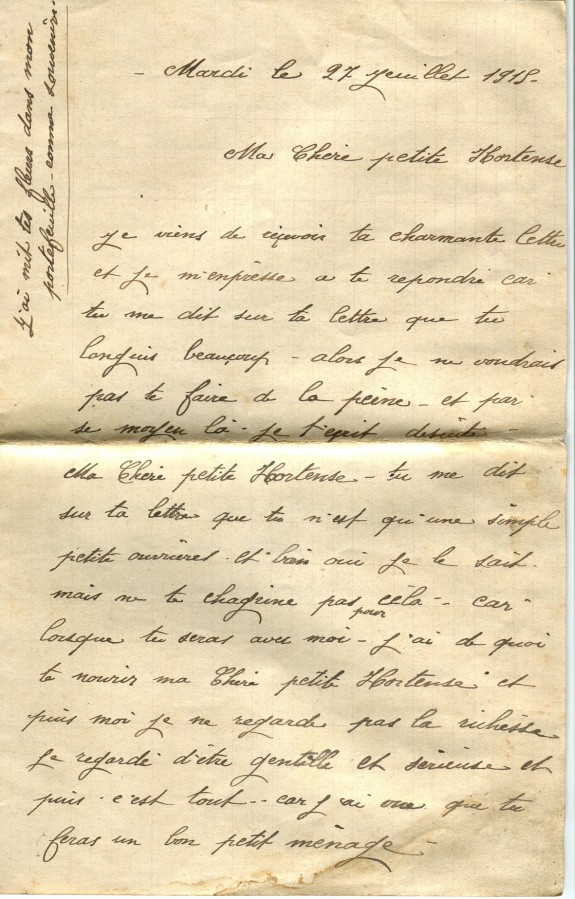 - Mardi le 27 jeuillet 1915 -
Ma Chère petite Hortense
je viens de reçevoir ta charmante lettre
et je m'enprèsse a te repondre car
tu me dit sur ta lettre que tu
languis beauçoup - alors je ne voudrais
pas te faire de la pèine - et par
se moyen là - je t'ecrit desuite -
Ma Chère petite Hortense - tu me dit
sur ta lettre que tu n'est qu'une simple
petite ouvrières - et bien oui je le sait -
mais ne te chagrine pas pour cèla - car
lorsque tu seras avec moi - j'ai de quoi
te nourir ma Chère petite Hortense et
puis moi je ne regarde pas la richèsse
je regarde d'être gentille et sèrieuse et
puis c'est tout - car j'ai vue que tu
feras un bon petit mènage -
j'ai mit tes fleurs dans mon
portefeuille - comme souvenir -